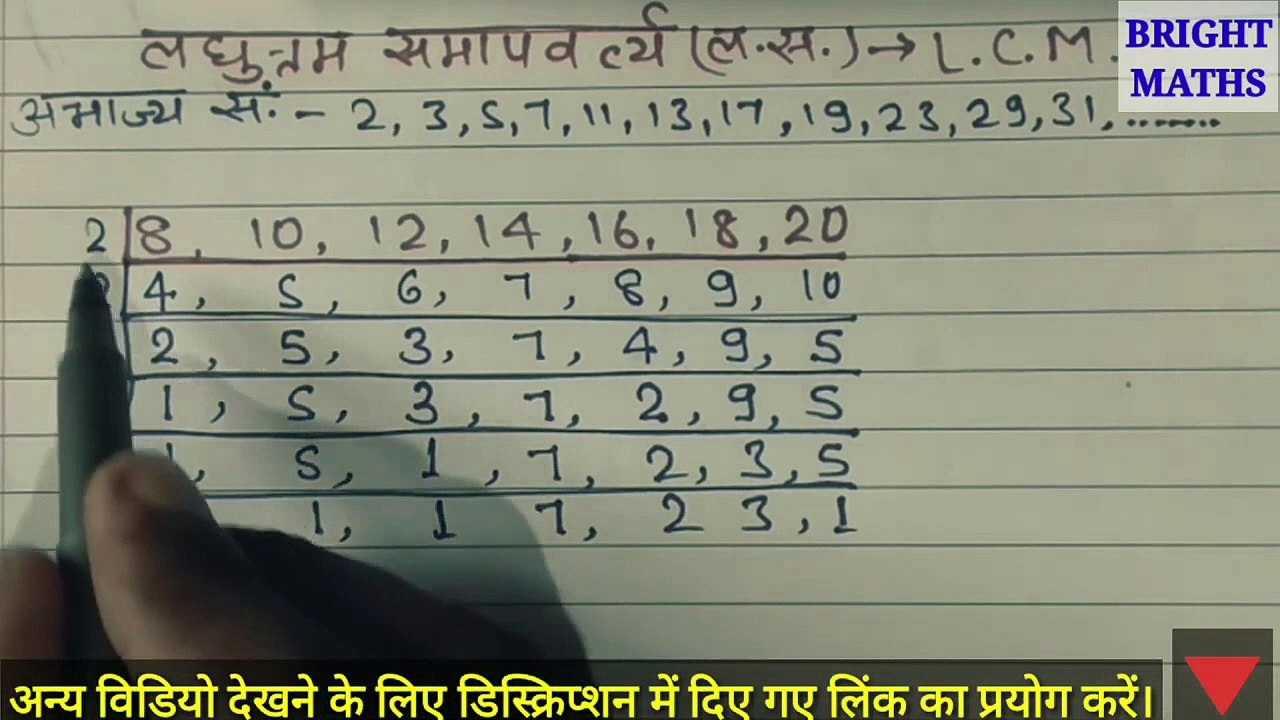 लघुत्तम समापवर्त्य (ल.स.) → L.C.M.
BRIGHT
MATHS
अभाज्य सं. - 2, 3, 5, 7, 11, 13, 17, 19, 23, 29, 31, .......
2 8, 10, 12, 14, 16, 18, 20
4, 5, 6, 7, 8, 9, 10
2, 5, 3, 7, 4, 9, 5
1, 5, 3, 7, 2, 9, 5
1, 5, 1, 7, 2, 3, 5
1, 1 7, 2 3, 1
अन्य विडियो देखने के लिए डिस्क्रिप्शन में दिए गए लिंक का प्रयोग करें।